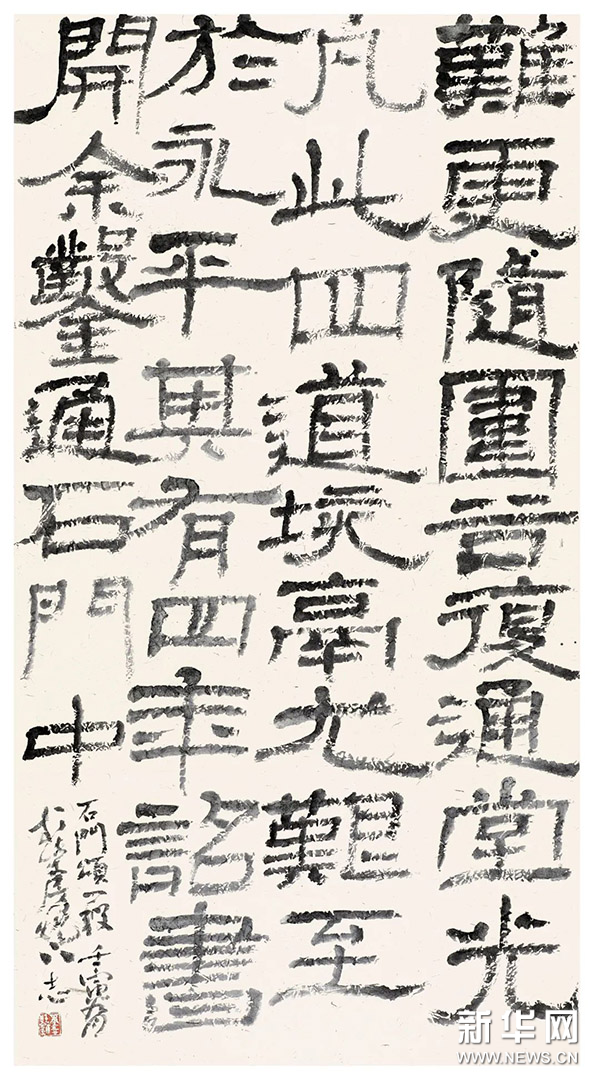 難更隨圍谷復通堂光
凡此四道垓鬲尤艱至
於永平其有四年詔書
開余鑿通石門中
石門頌一段 壬寅
志
新华网
WWW.NEWS.CN